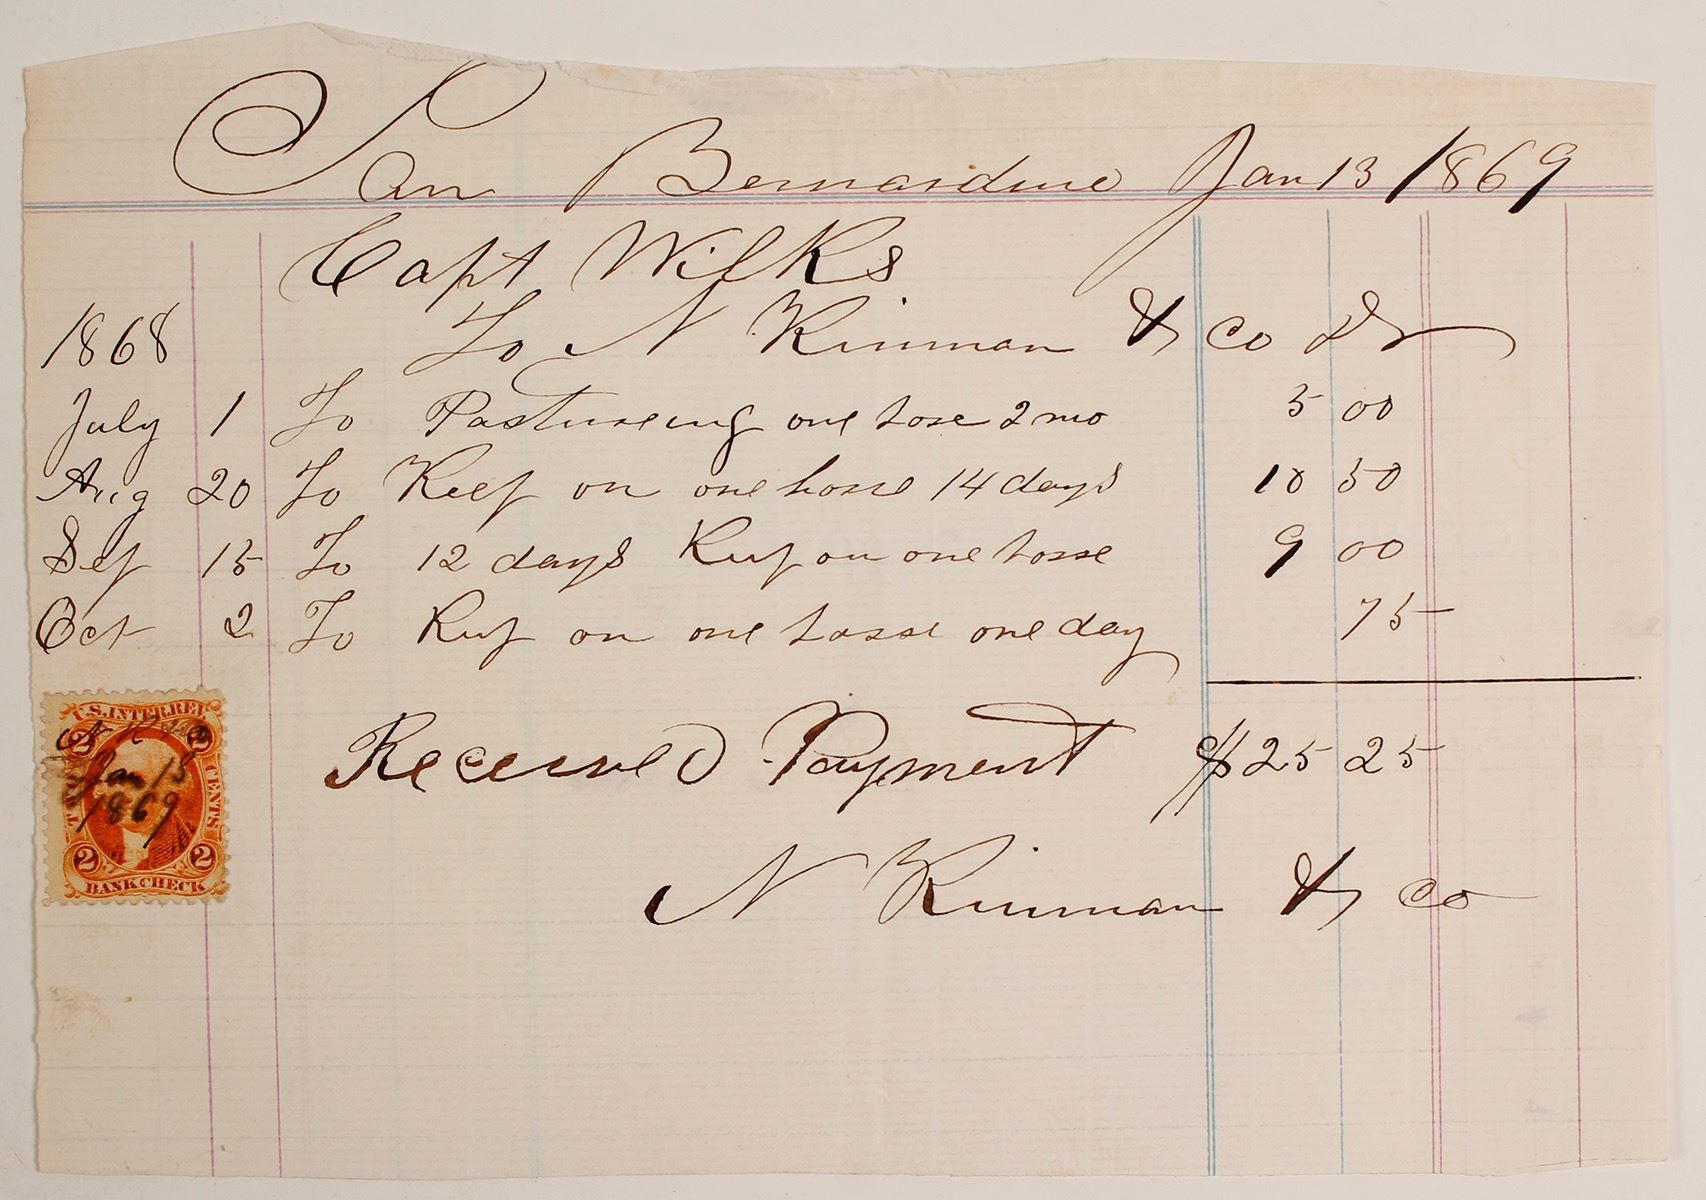 San Bernardino Jan 13 1869
Capt Wilks
1868 To N Kinman & Co Dr
July 1 To Pastureing one hose 2 mo 5 00
Aug 20 To Keep on one horse 14 days 10 50
Sep 15 To 12 days Keep on one horse 9 00
Oct 2 To Keep on one horse one day 75
Received Payment $25 25
N Kinman & Co
U.S. INTER. REV.
2 2
Jan 13
1869
CENTS
2 2
BANK CHECK